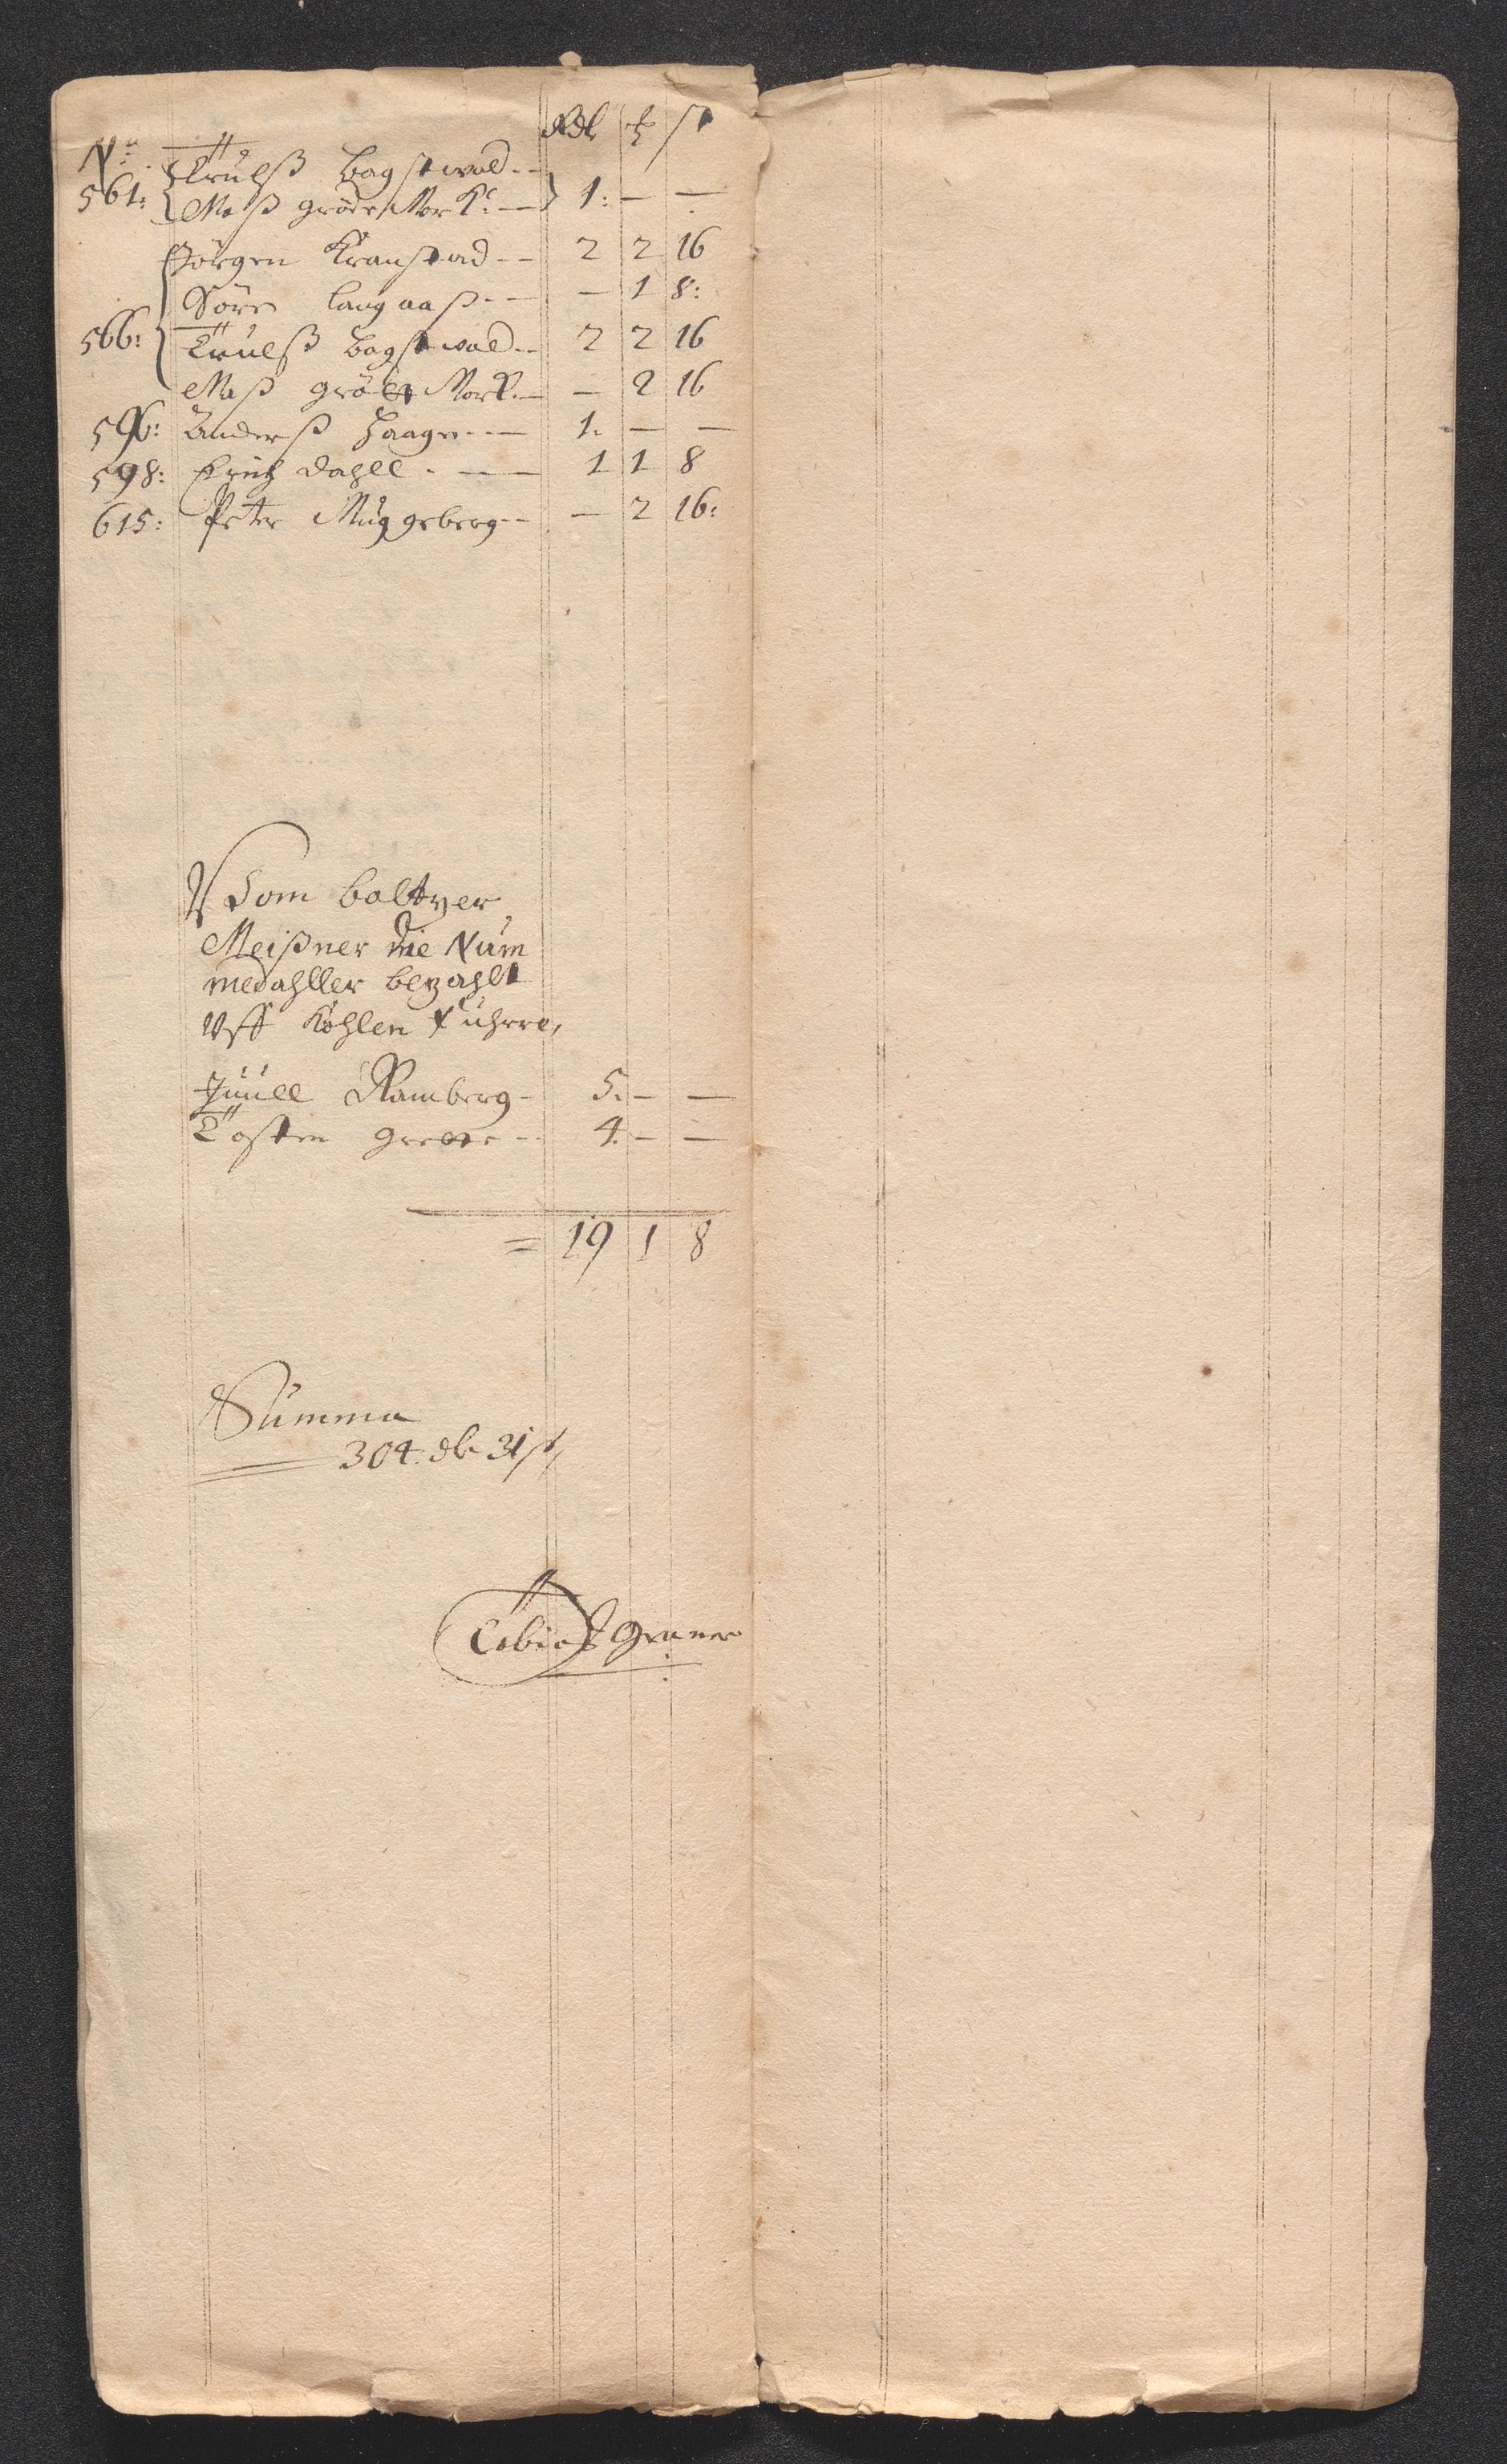 Rdl ort ß
No
561: Trulß bagstwold --
Maß gröde Mork: — 1: — —
Jörgen Kranstad -- 2 2 16
Sörn langaaß -- — 1 8:
566: Trulß bagstwold -- 2 2 16
Maß gröde Mork. — — 2 16
596: Anderß Haagen -- 1. — —
598: Erich dahll . — 1 1 8
615: Peter Muggeberg -- — 2 16:
Vom baltzer
Meißner die Num
medahller bezahlt
Uff Kohlen fuhren,
Juull Ramberg - 5. — —
Tosten grette -- 4. — —
= 19 1 8
Summa
304. dl. 31 ß,
Tobias Graner